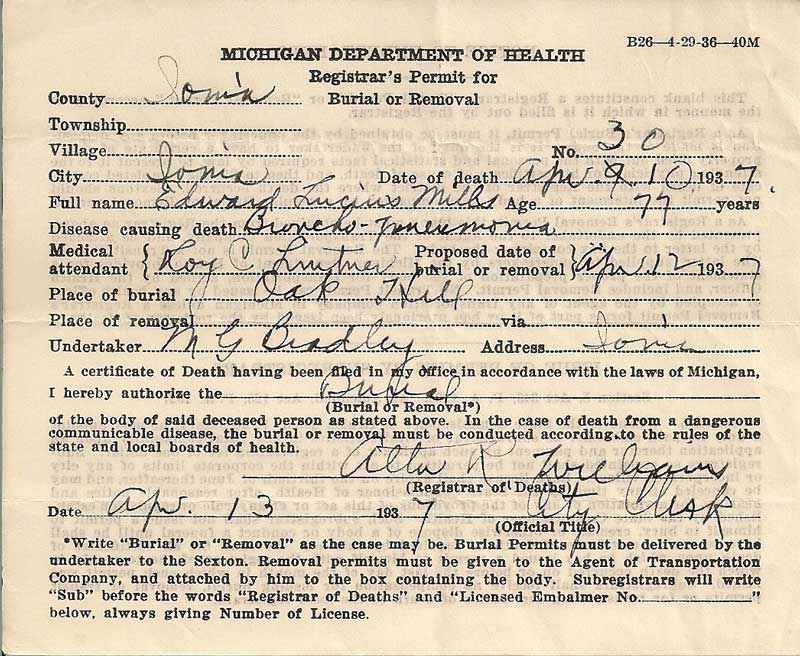 B26—4-29-36—40M
MICHIGAN DEPARTMENT OF HEALTH
Registrar's Permit for
County Ionia Burial or Removal
Township
Village No. 30
City Ionia Date of death Apr. 9 10 1937
Full name Edward Lucius Mills Age 77 years
Disease causing death Broncho-pneumonia
Medical attendant { Roy C. Proposed date of burial or removal } Apr 12 1937
Place of burial Oak Hill
Place of removal via
Undertaker M G Bradley Address Ionia
A certificate of Death having been filed in my office in accordance with the laws of Michigan,
I hereby authorize the Burial
(Burial or Removal*)
of the body of said deceased person as stated above. In the case of death from a dangerous
communicable disease, the burial or removal must be conducted according to the rules of the
state and local boards of health.
Alta R Williams
(Registrar of Deaths)
Date Apr. 13 1937 City Clerk
(Official Title)
*Write "Burial" or "Removal" as the case may be. Burial Permits must be delivered by the
undertaker to the Sexton. Removal permits must be given to the Agent of Transportation
Company, and attached by him to the box containing the body. Subregistrars will write
"Sub" before the words "Registrar of Deaths" and "Licensed Embalmer No. "
below, always giving Number of License.